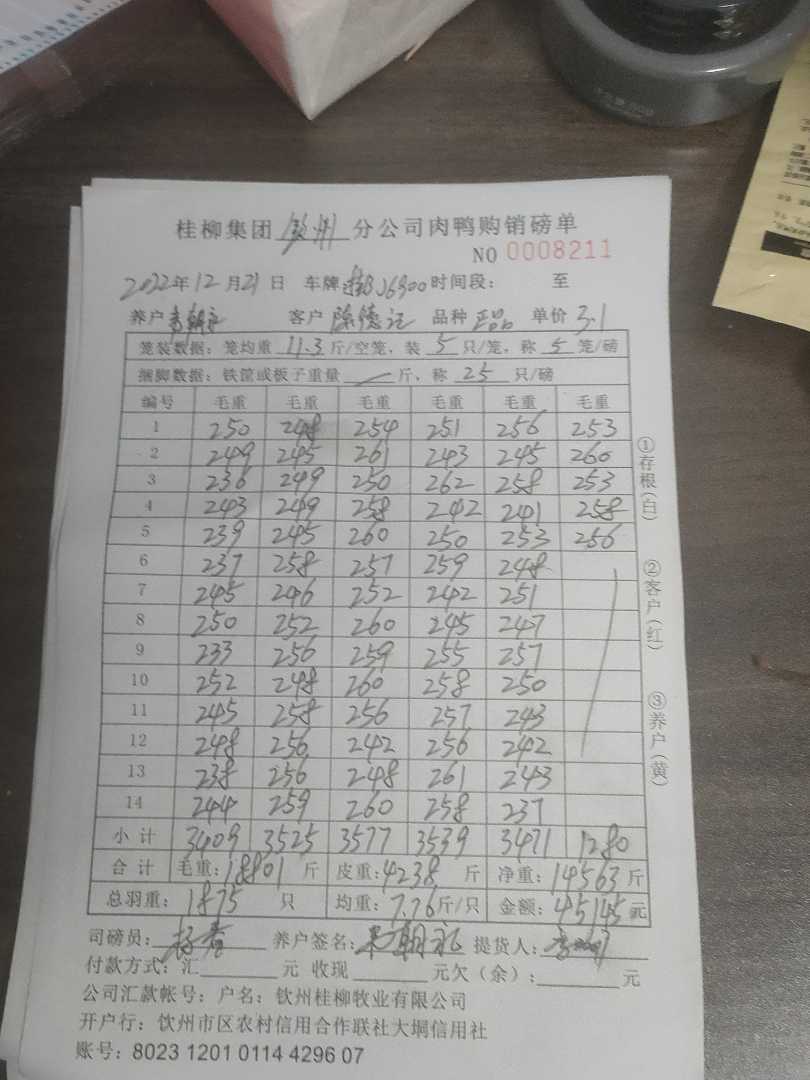 桂柳集团 钦州 分公司肉鸭购销磅单
NO 0008211
2022年12月21日 车牌 J6900 时间段： 至
养户 客户 陈德记 品种 正品 单价 3.1
笼装数据：笼均重 11.3 斤/空笼，装 5 只/笼，称 5 笼/磅
捆脚数据：铁筐或板子重量 斤，称 25 只/磅
编号 毛重 毛重 毛重 毛重 毛重 毛重
1 250 248 254 251 256 253
2 249 245 261 243 245 260
3 236 249 250 262 258 253
4 243 249 258 242 241 258
5 239 245 260 250 253 256
6 237 258 257 259 248
7 245 246 252 242 251
8 250 252 260 245 247
9 233 256 259 255 257
10 252 248 260 258 250
11 245 258 256 257 243
12 248 256 242 256 242
13 238 256 248 261 243
14 244 259 260 258 237
小计 3409 3525 3577 3539 3471 1280
合计 毛重：18801 斤 皮重：4238 斤 净重：14563 斤
总羽重：1875 只 均重：7.76 斤/只 金额：45145 元
司磅员： 养户签名： 提货人：
付款方式：汇 元 收现 元欠（余）： 元
公司汇款帐号：户名：钦州桂柳牧业有限公司
开户行：钦州市区农村信用合作联社大垌信用社
账号：8023 1201 0114 4296 07
①存根（白）
②客户（红）
③养户（黄）